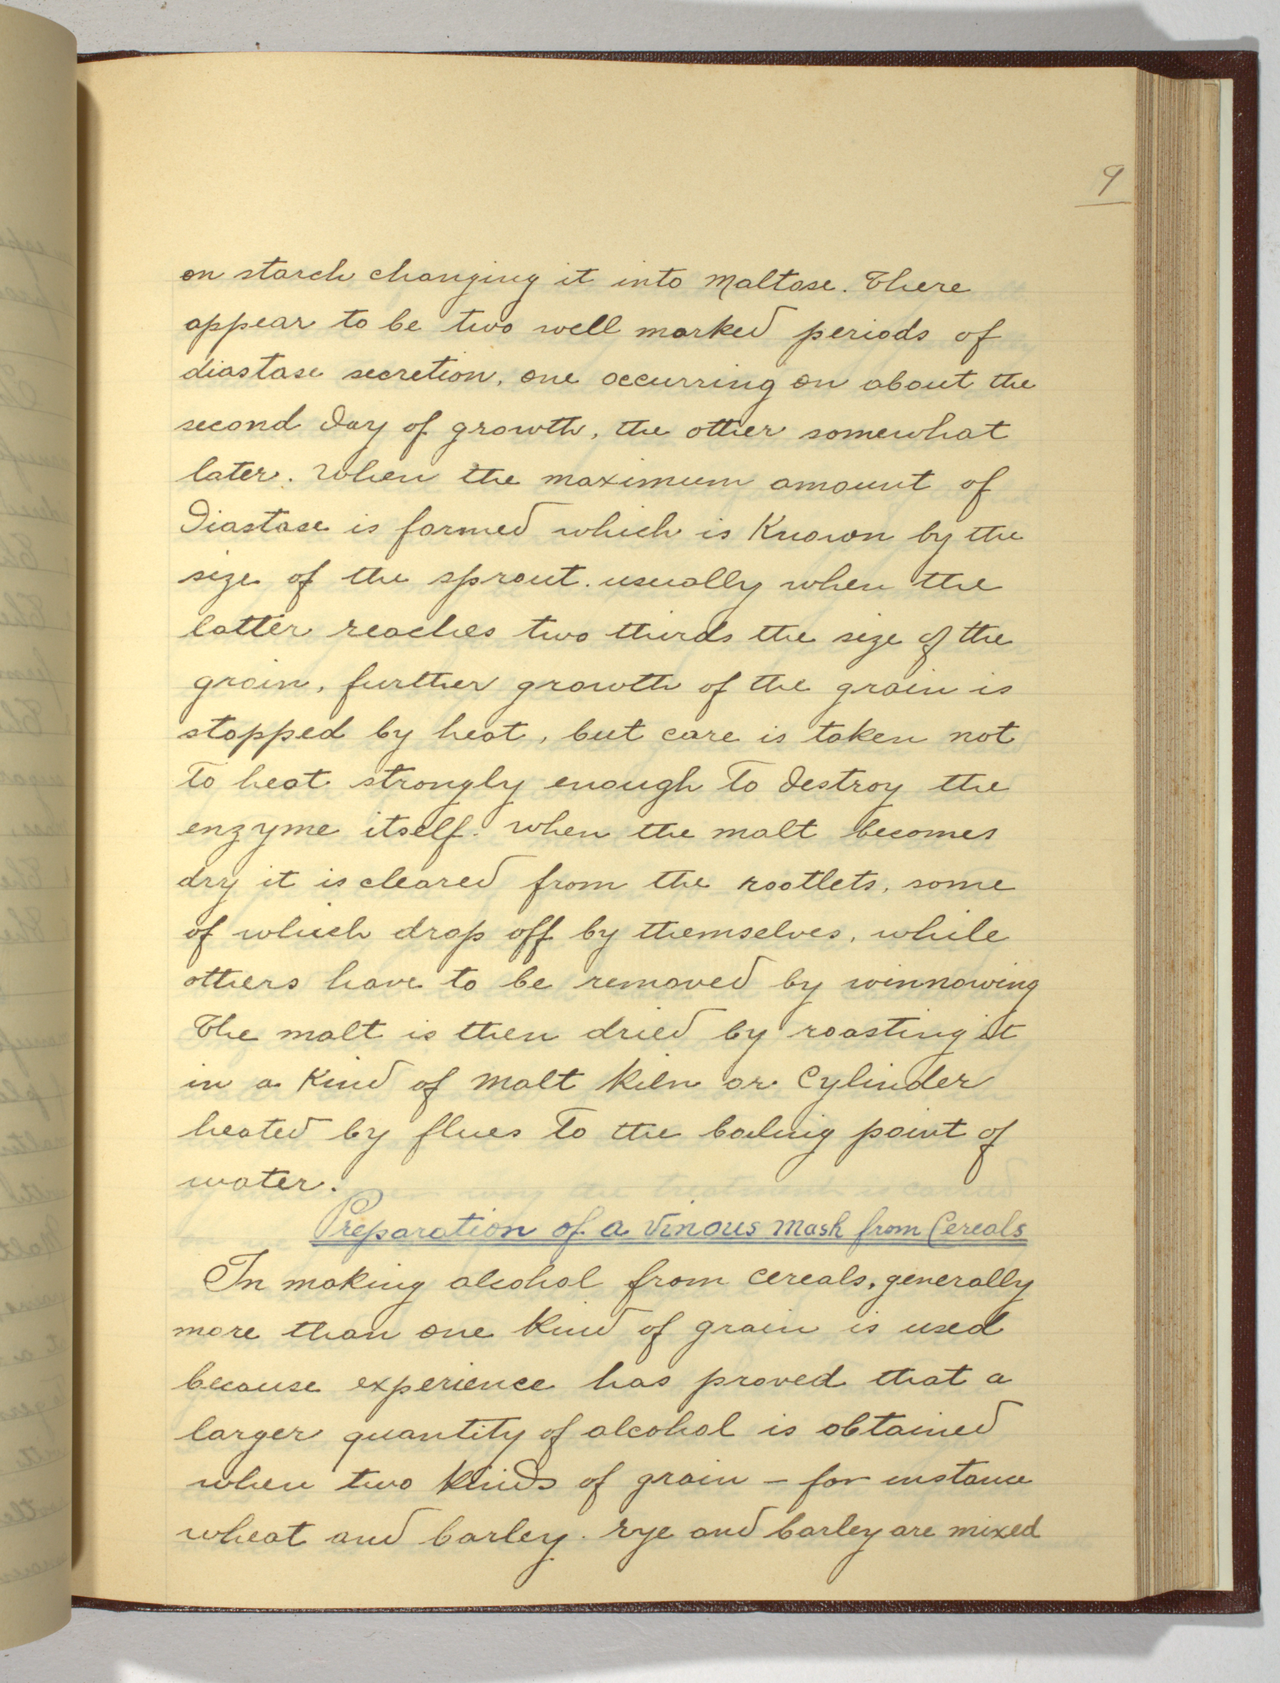 9
on starch changing it into Maltose. There
appear to be two well marked periods of
diastase secretion, one occurring on about the
second day of growth, the other somewhat
later. When the maximum amount of
Diastase is formed which is Known by the
size of the sprout. usually when the
latter reaches two thirds the size of the
grain, further growth of the grain is
stopped by heat, but care is taken not
To heat strongly enough To destroy the
enzyme itself. When the malt becomes
dry it is cleared from the rootlets, some
of which drop off by themselves, while
others have to be removed by winnowing
The malt is then dried by roasting it
in a Kind of Malt Kiln or Cylinder
heated by flues To the boiling point of
water.
Preparation of a Vinous Mash from Cereals
In making alcohol from cereals, generally
more than one Kind of grain is used
because experience has proved that a
larger quantity of alcohol is obtained
when two Kinds of grain – for instance
wheat and barley. rye and barley are mixed